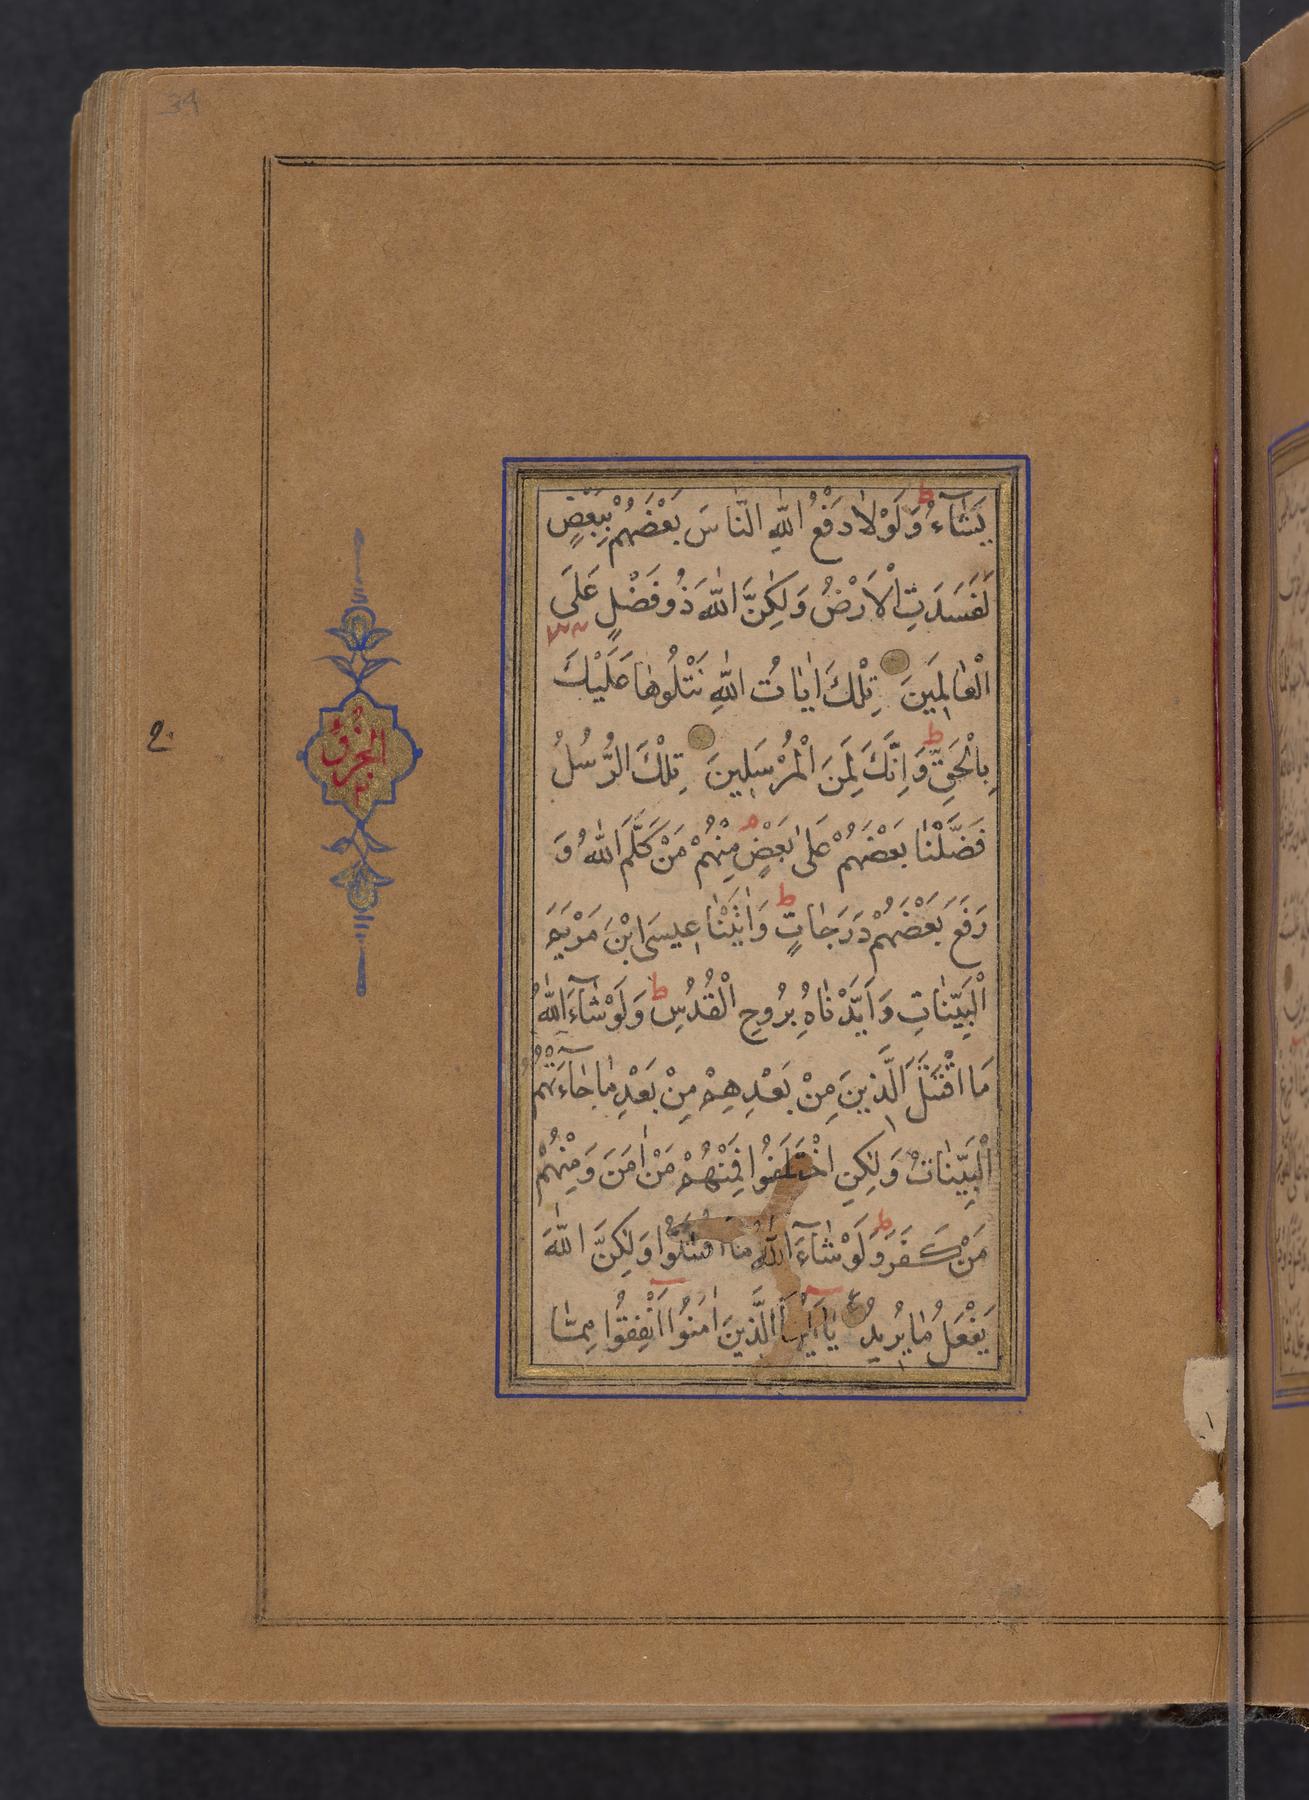 34
يَشَآءُ ط وَلَوْلَا دَفْعُ اللّٰهِ النَّاسَ بَعْضَهُمْ بِبَعْضٍ
لَفَسَدَتِ الْاَرْضُ وَلٰكِنَّ اللّٰهَ ذُو فَضْلٍ عَلَى
الْعٰالَمِينَ تِلْكَ اٰيٰاتُ اللّٰهِ نَتْلُوهٰا عَلَيْكَ
بِالْحَقِّ ط وَاِنَّكَ لَمِنَ الْمُرْسَلِينَ تِلْكَ الرُّسُلُ
فَضَّلْنٰا بَعْضَهُمْ عَلٰى بَعْضٍ م مِنْهُمْ مَنْ كَلَّمَ اللّٰهُ وَ
رَفَعَ بَعْضَهُمْ دَرَجٰاتٍ ط وَاٰتَيْنٰا عِيسَى ابْنَ مَرْيَمَ
الْبَيِّنٰاتِ وَاَيَّدْنٰاهُ بِرُوحِ الْقُدُسِ ط وَلَوْ شٰآءَ اللّٰهُ
مَا اقْتَتَلَ الَّذِينَ مِنْ بَعْدِهِمْ مِنْ بَعْدِ مٰا جٰآءَتْهُمُ
الْبَيِّنٰاتُ وَلٰكِنِ اخْتَلَفُوا فَمِنْهُمْ مَنْ اٰمَنَ وَمِنْهُمْ
مَنْ كَفَرَ ط وَلَوْ شٰآءَ اللّٰهُ مَا اقْتَتَلُوا وَلٰكِنَّ اللّٰهَ
يَفْعَلُ مٰا يُرِيدُ ع يٰآ اَيُّهَا الَّذِينَ اٰمَنُوا اَنْفِقُوا مِمّٰا
الجزو
٣